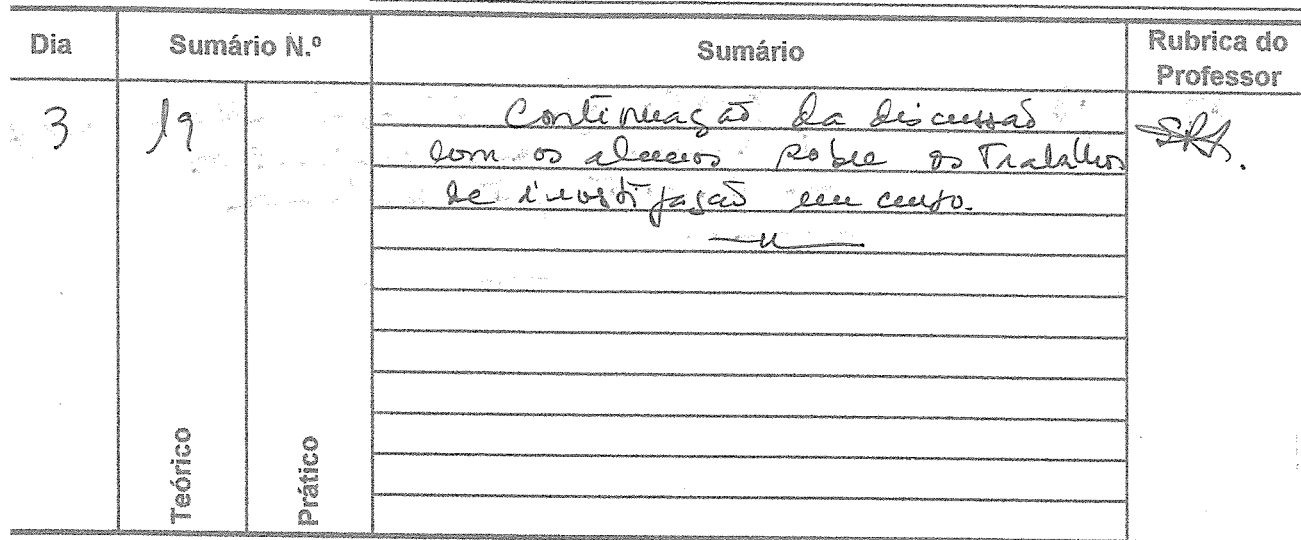 Dia Sumário N.º Sumário Rubrica do Professor
3 19 Continuação da discussão
com os alunos sobre os Trabalhos
de investigação em curso.
Teórico Prático